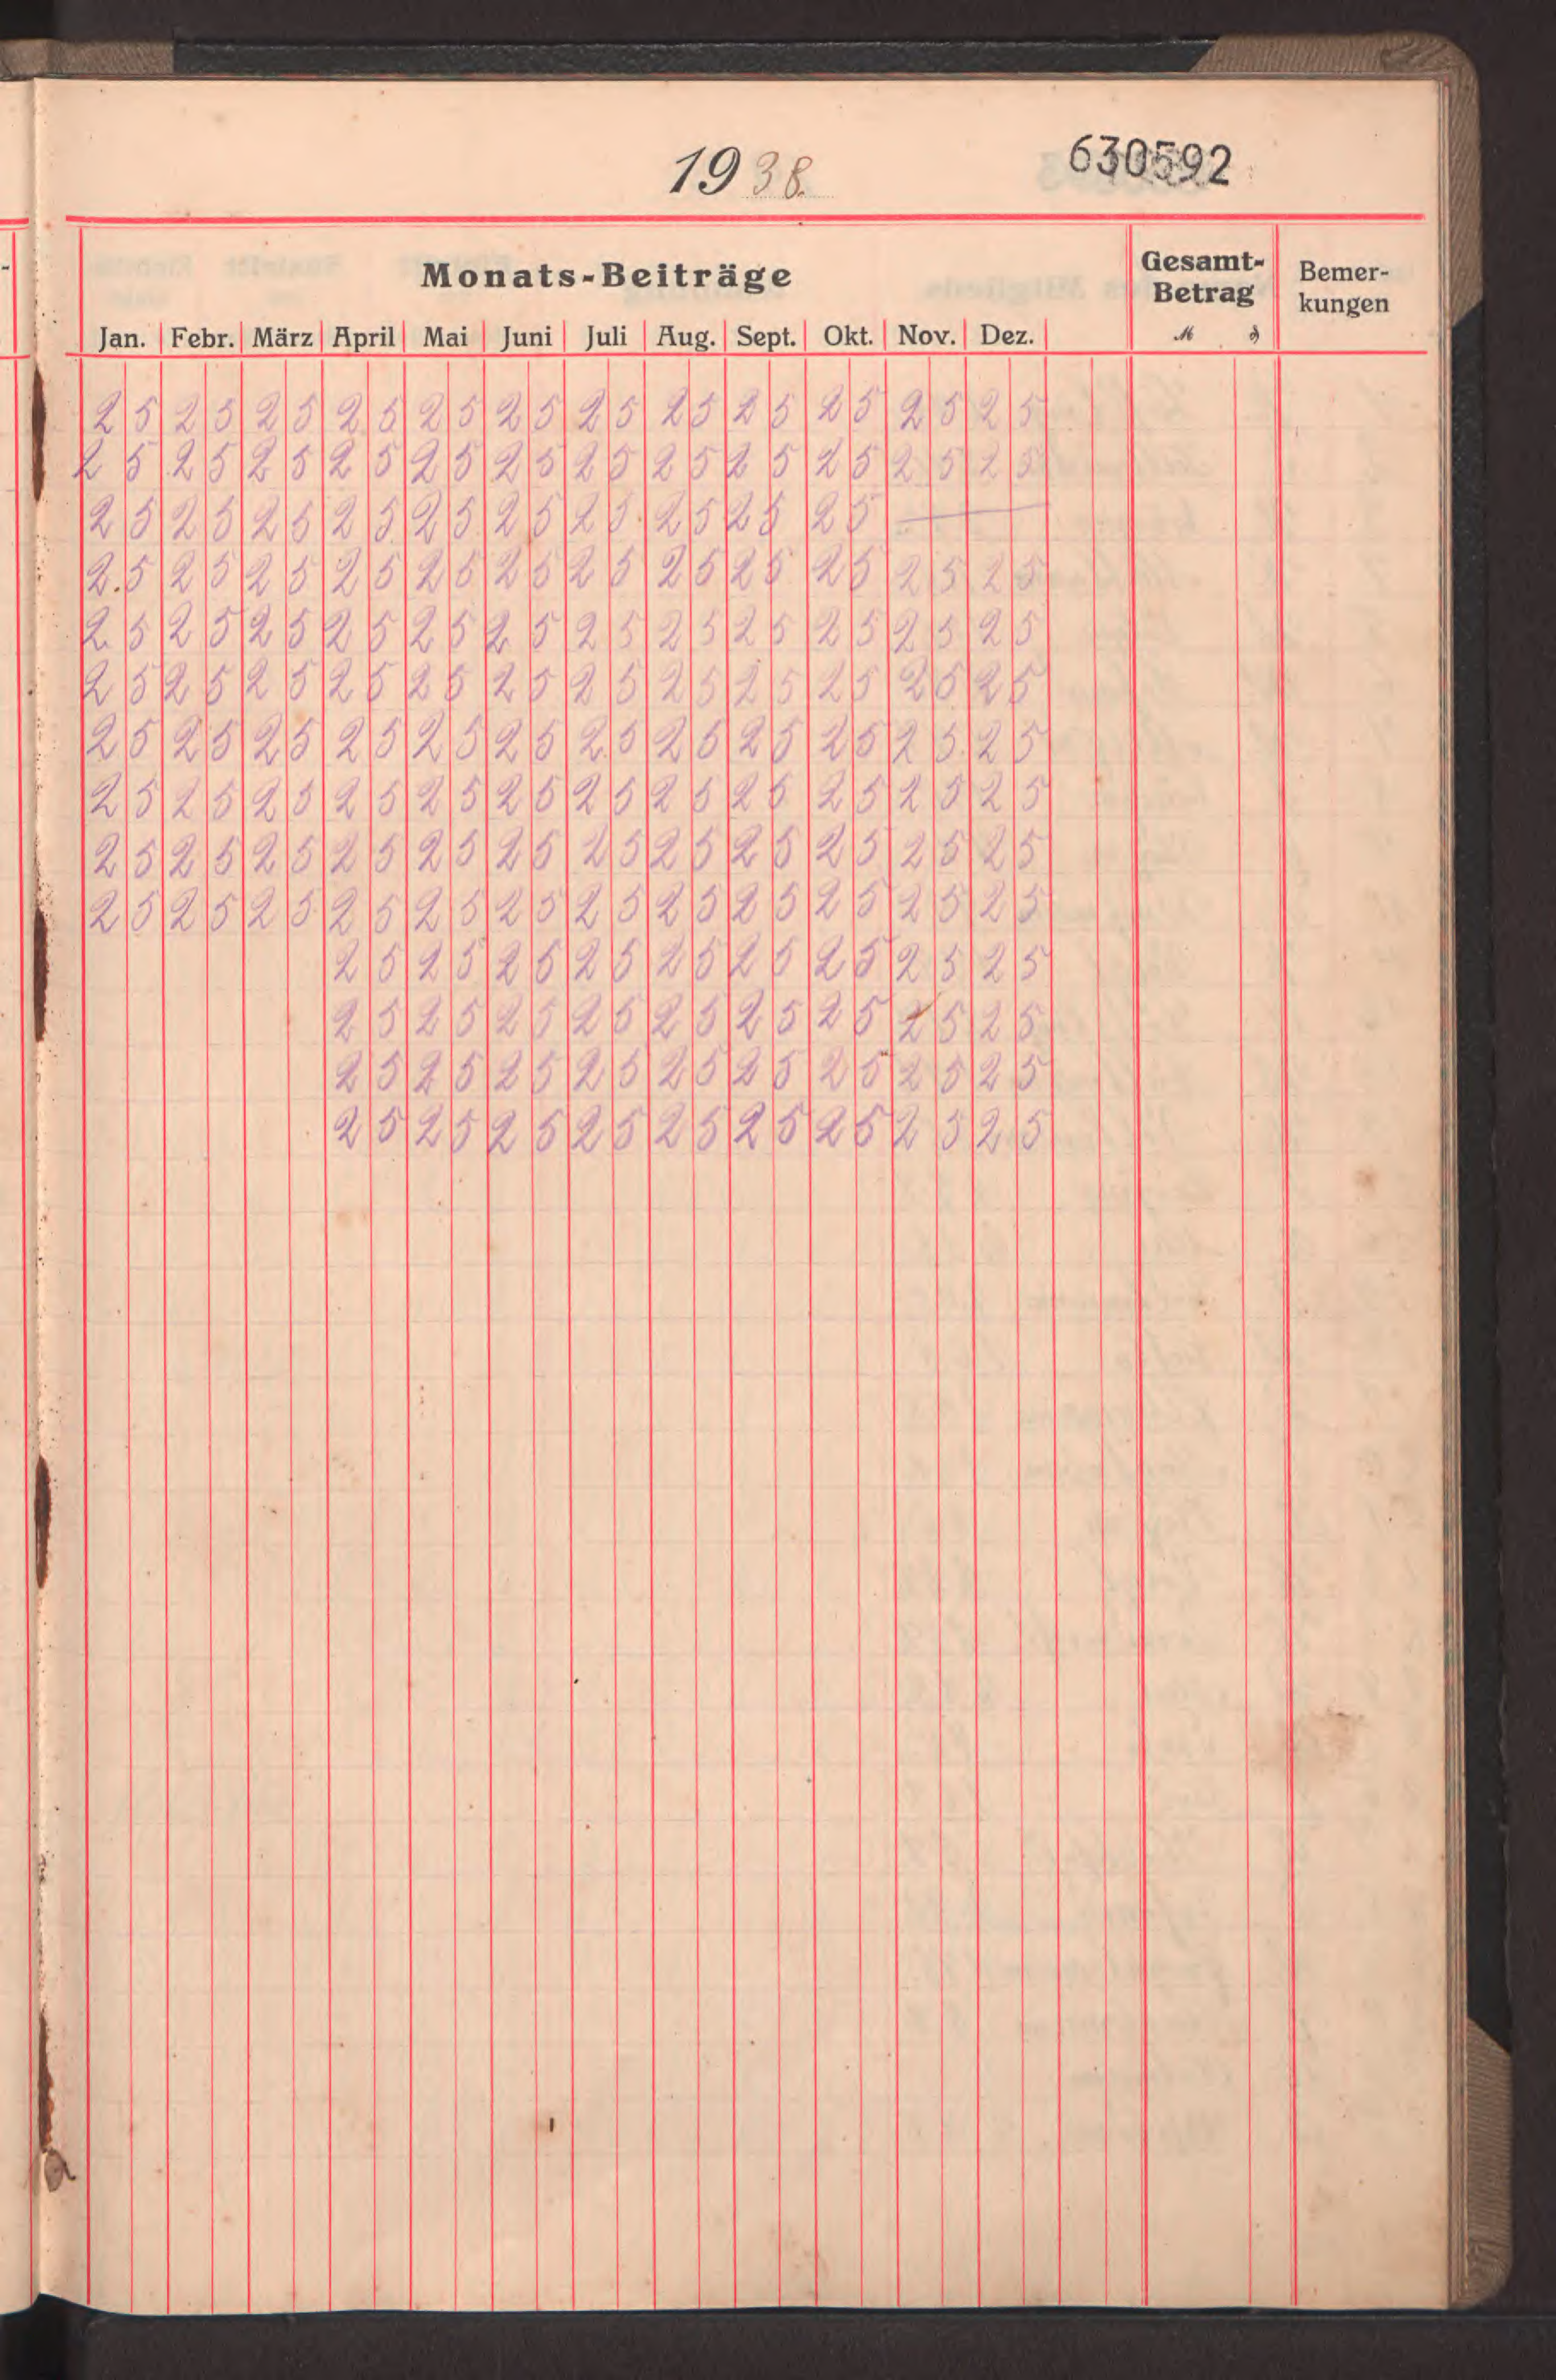 1938.
630592
Monats-Beiträge Gesamt-Betrag Bemer-kungen
Jan. Febr. März April Mai Juni Juli Aug. Sept. Okt. Nov. Dez. M ₰
25 25 25 25 25 25 25 25 25 25 25 25
25 25 25 25 25 25 25 25 25 25 25 25
25 25 25 25 25 25 25 25 25 25 —
2.5 25 25 25 25 25 25 25 25 25 25 25
25 25 25 25 25 25 25 25 25 25 25 25
25 25 25 25 25 25 25 25 25 25 25 25
25 25 25 25 25 25 25 25 25 25 25 25
25 25 25 25 25 25 25 25 25 25 25 25
25 25 25 25 25 25 25 25 25 25 25 25
25 25 25 25 25 25 25 25 25 25 25 25
25 25 25 25 25 25 25 25 25
25 25 25 25 25 25 25 25 25
25 25 25 25 25 25 25 25 25
25 25 25 25 25 25 25 25 25